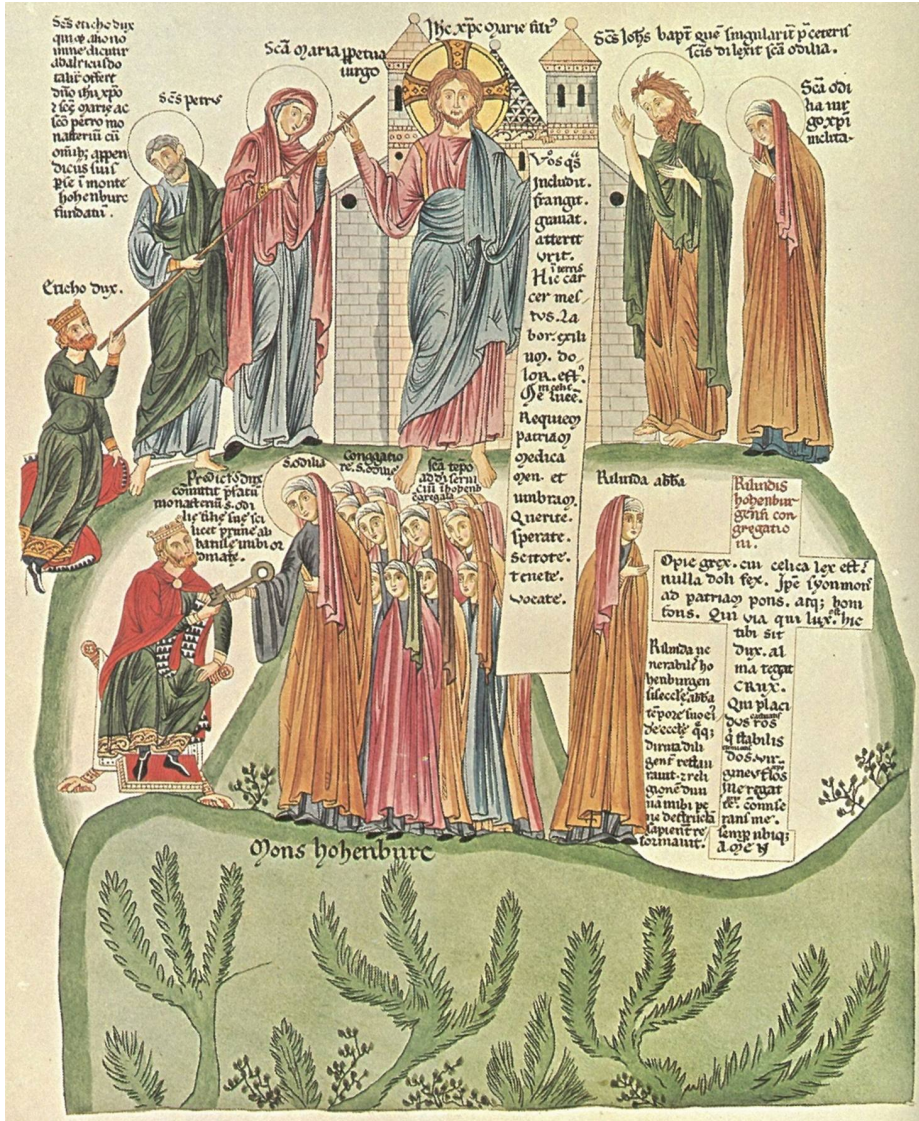 Sc̄s eticho dux
qui & alio no
mine dicitur
adalricus do
talit offert
dn̄o ihu xp̄o
⁊ sc̄ę Marie ac
sc̄o petro mo
nasteriū cū
om̄ib; appen
dicus suis
p se ī monte
hohenburc
fundatū.
Sc̄s petrus
Sc̄a Maria ppetua
uirgo
Ihc xp̄c Marie filiꝰ
Sc̄s Ioh̄s bapt̄ quē singularit̄ p ceteris
sc̄is dilexit sc̄a odilia.
Sc̄a odi
lia uir
go xp̄i
inclita.
Eticho dux.
Vos q̄s
Includit.
frangit.
grauat.
atterit
vrit.
ī terris
Hic car
cer mes
tvs. La
bor. exili
um. do
lor. est.
in celis
Me lucē.
Requiem
patriam
Medica
men. et
umbram.
Querite.
sperate.
Scitote.
tenete.
vocate.
Predict dux
comittit p̄fatū
monasteriū S. odi
lię filię suę sci
licet prime ab
batisse
S. odilia
Cong̅gatio
S. odilię
Rilinda abb̄a
Rilindis
hohenbur
gensis con
gregatio
ni.
O pie grex. cui celica lex est.
nulla doli fex. Ipse syon mons
ad patriam pons. atq; boni
fons. Qui via qui lux. hic
tibi sit
dux. al
ma tegat
CRUX.
Qui placi
dus ros
q̄ stabilis
dos. vir
gineus flos
ille regat
te. con̄ise
rans me.
semp ubiq;
AMEN
Rilinda ue
nerabilis ho
henburgen
sis eccl̄ę abb̄a
tēpore suo ei
de eccl̄ę q̄q;
diruta dili
gent restau
rauit. ⁊ reli
gionē diui
nā inibi pe
ne destructā
sapienter re
formauit.
Mons hohenburc